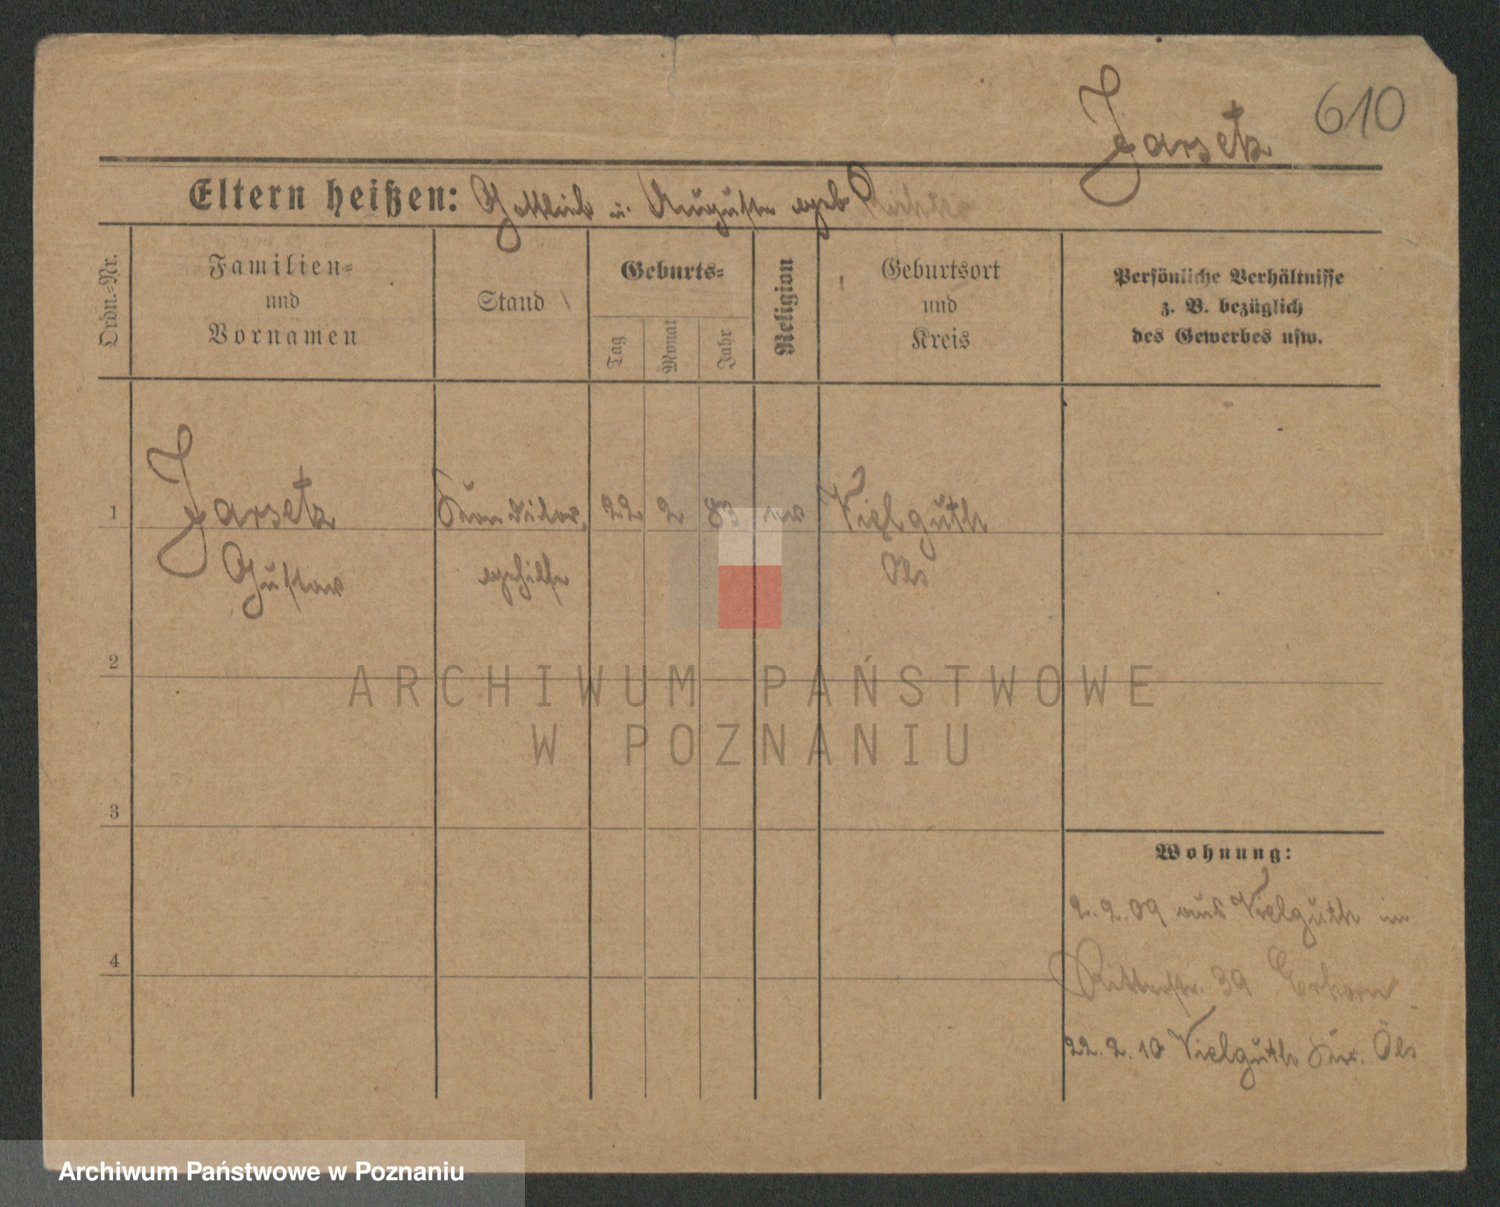 610
Jarsetz
Eltern heißen: Gottlieb u. Auguste geb. Richter
Ordn.-Nr.
Familien-
und
Vornamen
Stand
Geburts-
Tag
Monat
Jahr
Religion
Geburtsort
und
Kreis
Persönliche Verhältnisse
z. B. bezüglich
des Gewerbes usw.
1
Jarsetz
Gustav
gehilfe
22
2
83
Vielguth
Öls
2
ARCHIWUM PAŃSTWOWE
W POZNANIU
3
4
Wohnung:
2.2.09 aus Vielguth in
Ritterstr. 39
22.2.10 Vielguth Öls
Archiwum Państwowe w Poznaniu